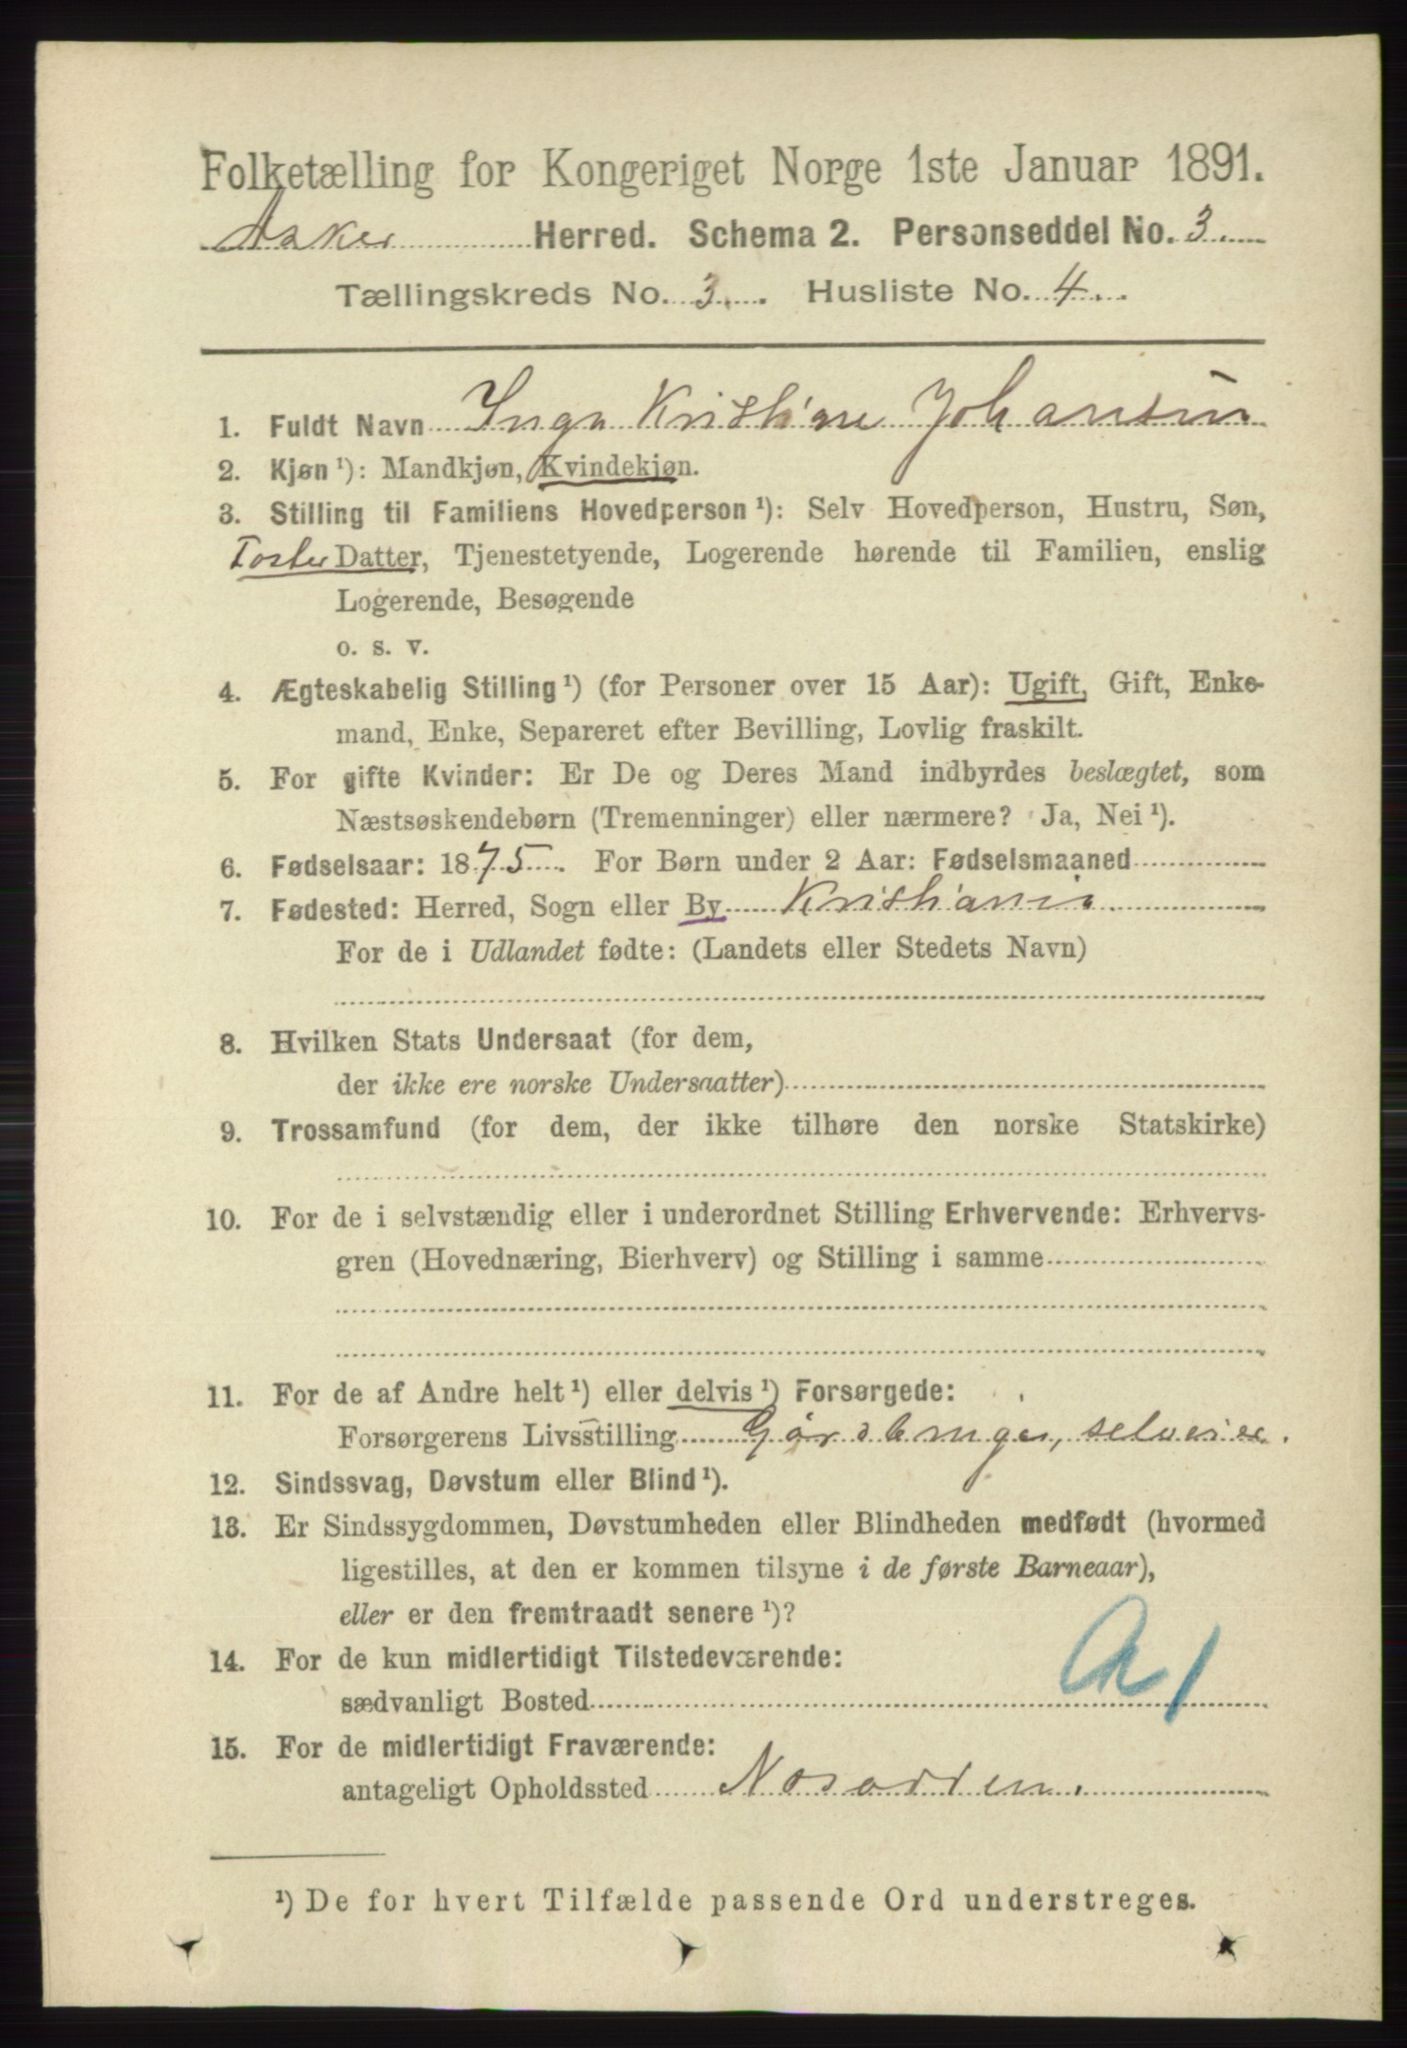 Folketælling for Kongeriget Norge 1ste Januar 1891.
Asker Herred. Schema 2. Personseddel No. 3.
Tællingskreds No. 3. Husliste No. 4.
1. Fuldt Navn Inga Kristiane Johansen
2. Kjøn ¹): Mandkjøn, Kvindekjøn.
3. Stilling til Familiens Hovedperson ¹): Selv Hovedperson, Hustru, Søn,
Foster Datter, Tjenestetyende, Logerende hørende til Familien, enslig
Logerende, Besøgende
o. s. v.
4. Ægteskabelig Stilling ¹) (for Personer over 15 Aar): Ugift, Gift, Enke-
mand, Enke, Separeret efter Bevilling, Lovlig fraskilt.
5. For gifte Kvinder: Er De og Deres Mand indbyrdes beslægtet, som
Næstsøskendebørn (Tremenninger) eller nærmere? Ja, Nei ¹).
6. Fødselsaar: 1875. For Børn under 2 Aar: Fødselsmaaned
7. Fødested: Herred, Sogn eller By Kristiania.
For de i Udlandet fødte: (Landets eller Stedets Navn)
8. Hvilken Stats Undersaat (for dem,
der ikke ere norske Undersaatter)
9. Trossamfund (for dem, der ikke tilhøre den norske Statskirke)
10. For de i selvstændig eller i underordnet Stilling Erhvervende: Erhvervs-
gren (Hovednæring, Bierhverv) og Stilling i samme
11. For de af Andre helt ¹) eller delvis ¹) Forsørgede:
Forsørgerens Livsstilling Gårdbruger, selveier.
12. Sindssvag, Døvstum eller Blind ¹).
13. Er Sindssygdommen, Døvstumheden eller Blindheden medfødt (hvormed
ligestilles, at den er kommen tilsyne i de første Barneaar),
eller er den fremtraadt senere ¹)?
14. For de kun midlertidigt Tilstedeværende:
sædvanligt Bosted
A 1
15. For de midlertidigt Fraværende:
antageligt Opholdssted Nesodden.
¹) De for hvert Tilfælde passende Ord understreges.